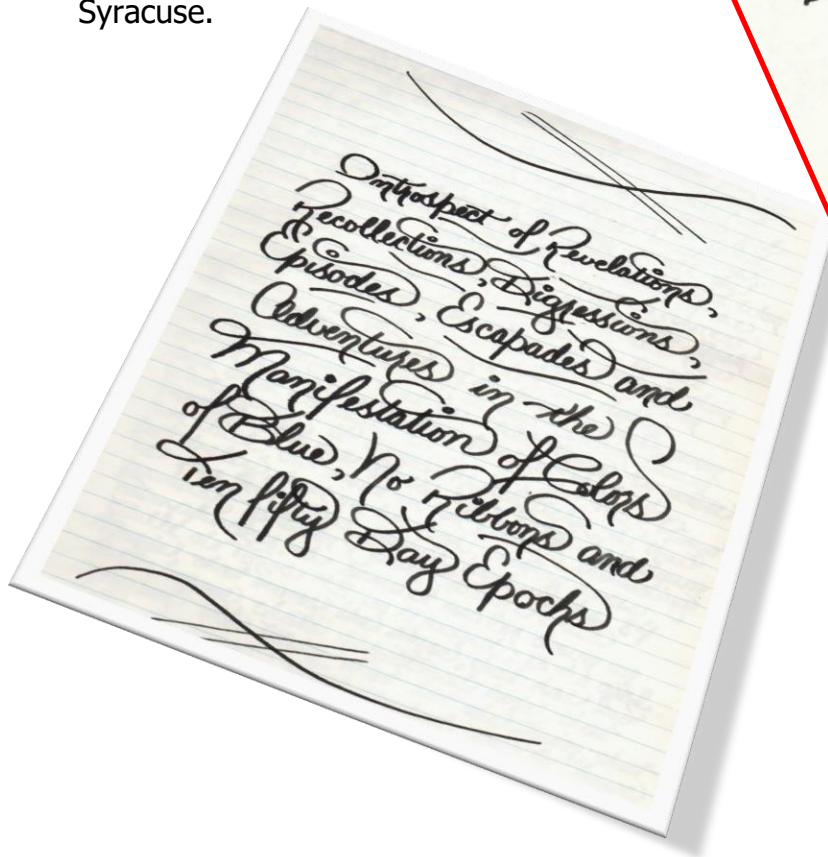 Syracuse.
Introspect of Revelations,
Recollections, Digressions,
Episodes, Escapades and
Adventures in the
Manifestation of Colors
of Blue, No Ribbons and
Ten fifty Day Epochs